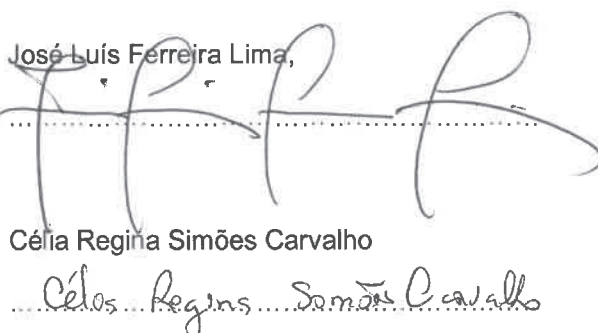 José Luís Ferreira Lima,
Célia Regina Simões Carvalho
Célia Regina Simões Carvalho